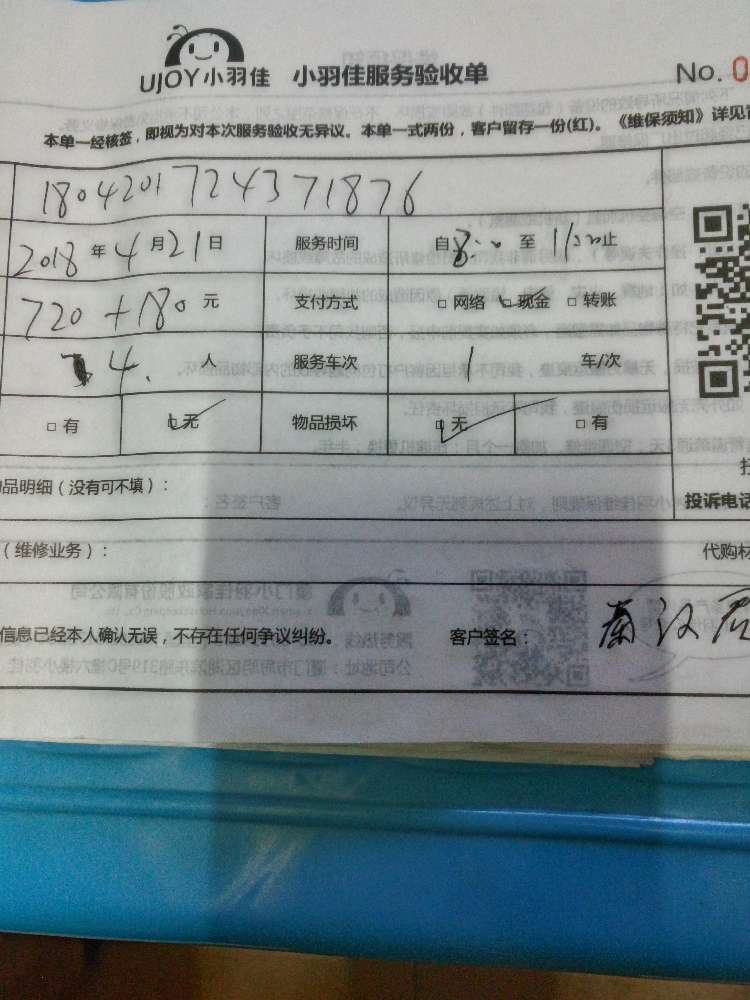 UJOY小羽佳 小羽佳服务验收单 No. 0
本单一经核签，即视为对本次服务验收无异议。本单一式两份，客户留存一份(红)。《维保须知》详见背
1804201724371876
2018 年 4 月 21 日 服务时间 自 8:00 至 11:30 止
720+180 元 支付方式 □ 网络 □ 现金 □ 转账
4. 人 服务车次 1 车/次
□ 有 □ 无 物品损坏 □ 无 □ 有
品明细（没有可不填）：
投诉电话
（维修业务）： 代购材
信息已经本人确认无误，不存在任何争议纠纷。 客户签名：